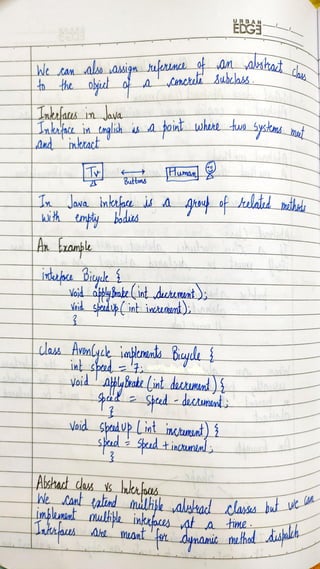 URBAN
EDGE
We can also assign reference of an abstract class
to the object of a concrete subclass.
Interfaces in Java
Interface in english is a point where two systems meet
and interact
TV ⟷ Human
Buttons
In Java interface is a group of related methods
with empty bodies
An Example
interface Bicycle {
void applyBrake (int decrement);
void speedUp (int increment);
}
class AvonCycle implements Bicycle {
int speed = 7;
void applyBrake (int decrement) {
speed = speed - decrement;
}
void speedUp (int increment) {
speed = speed + increment;
}
Abstract class vs Interfaces
We cant extend multiple abstract classes but we can
implement multiple interfaces at a time.
Interfaces are meant for dynamic method dispatch